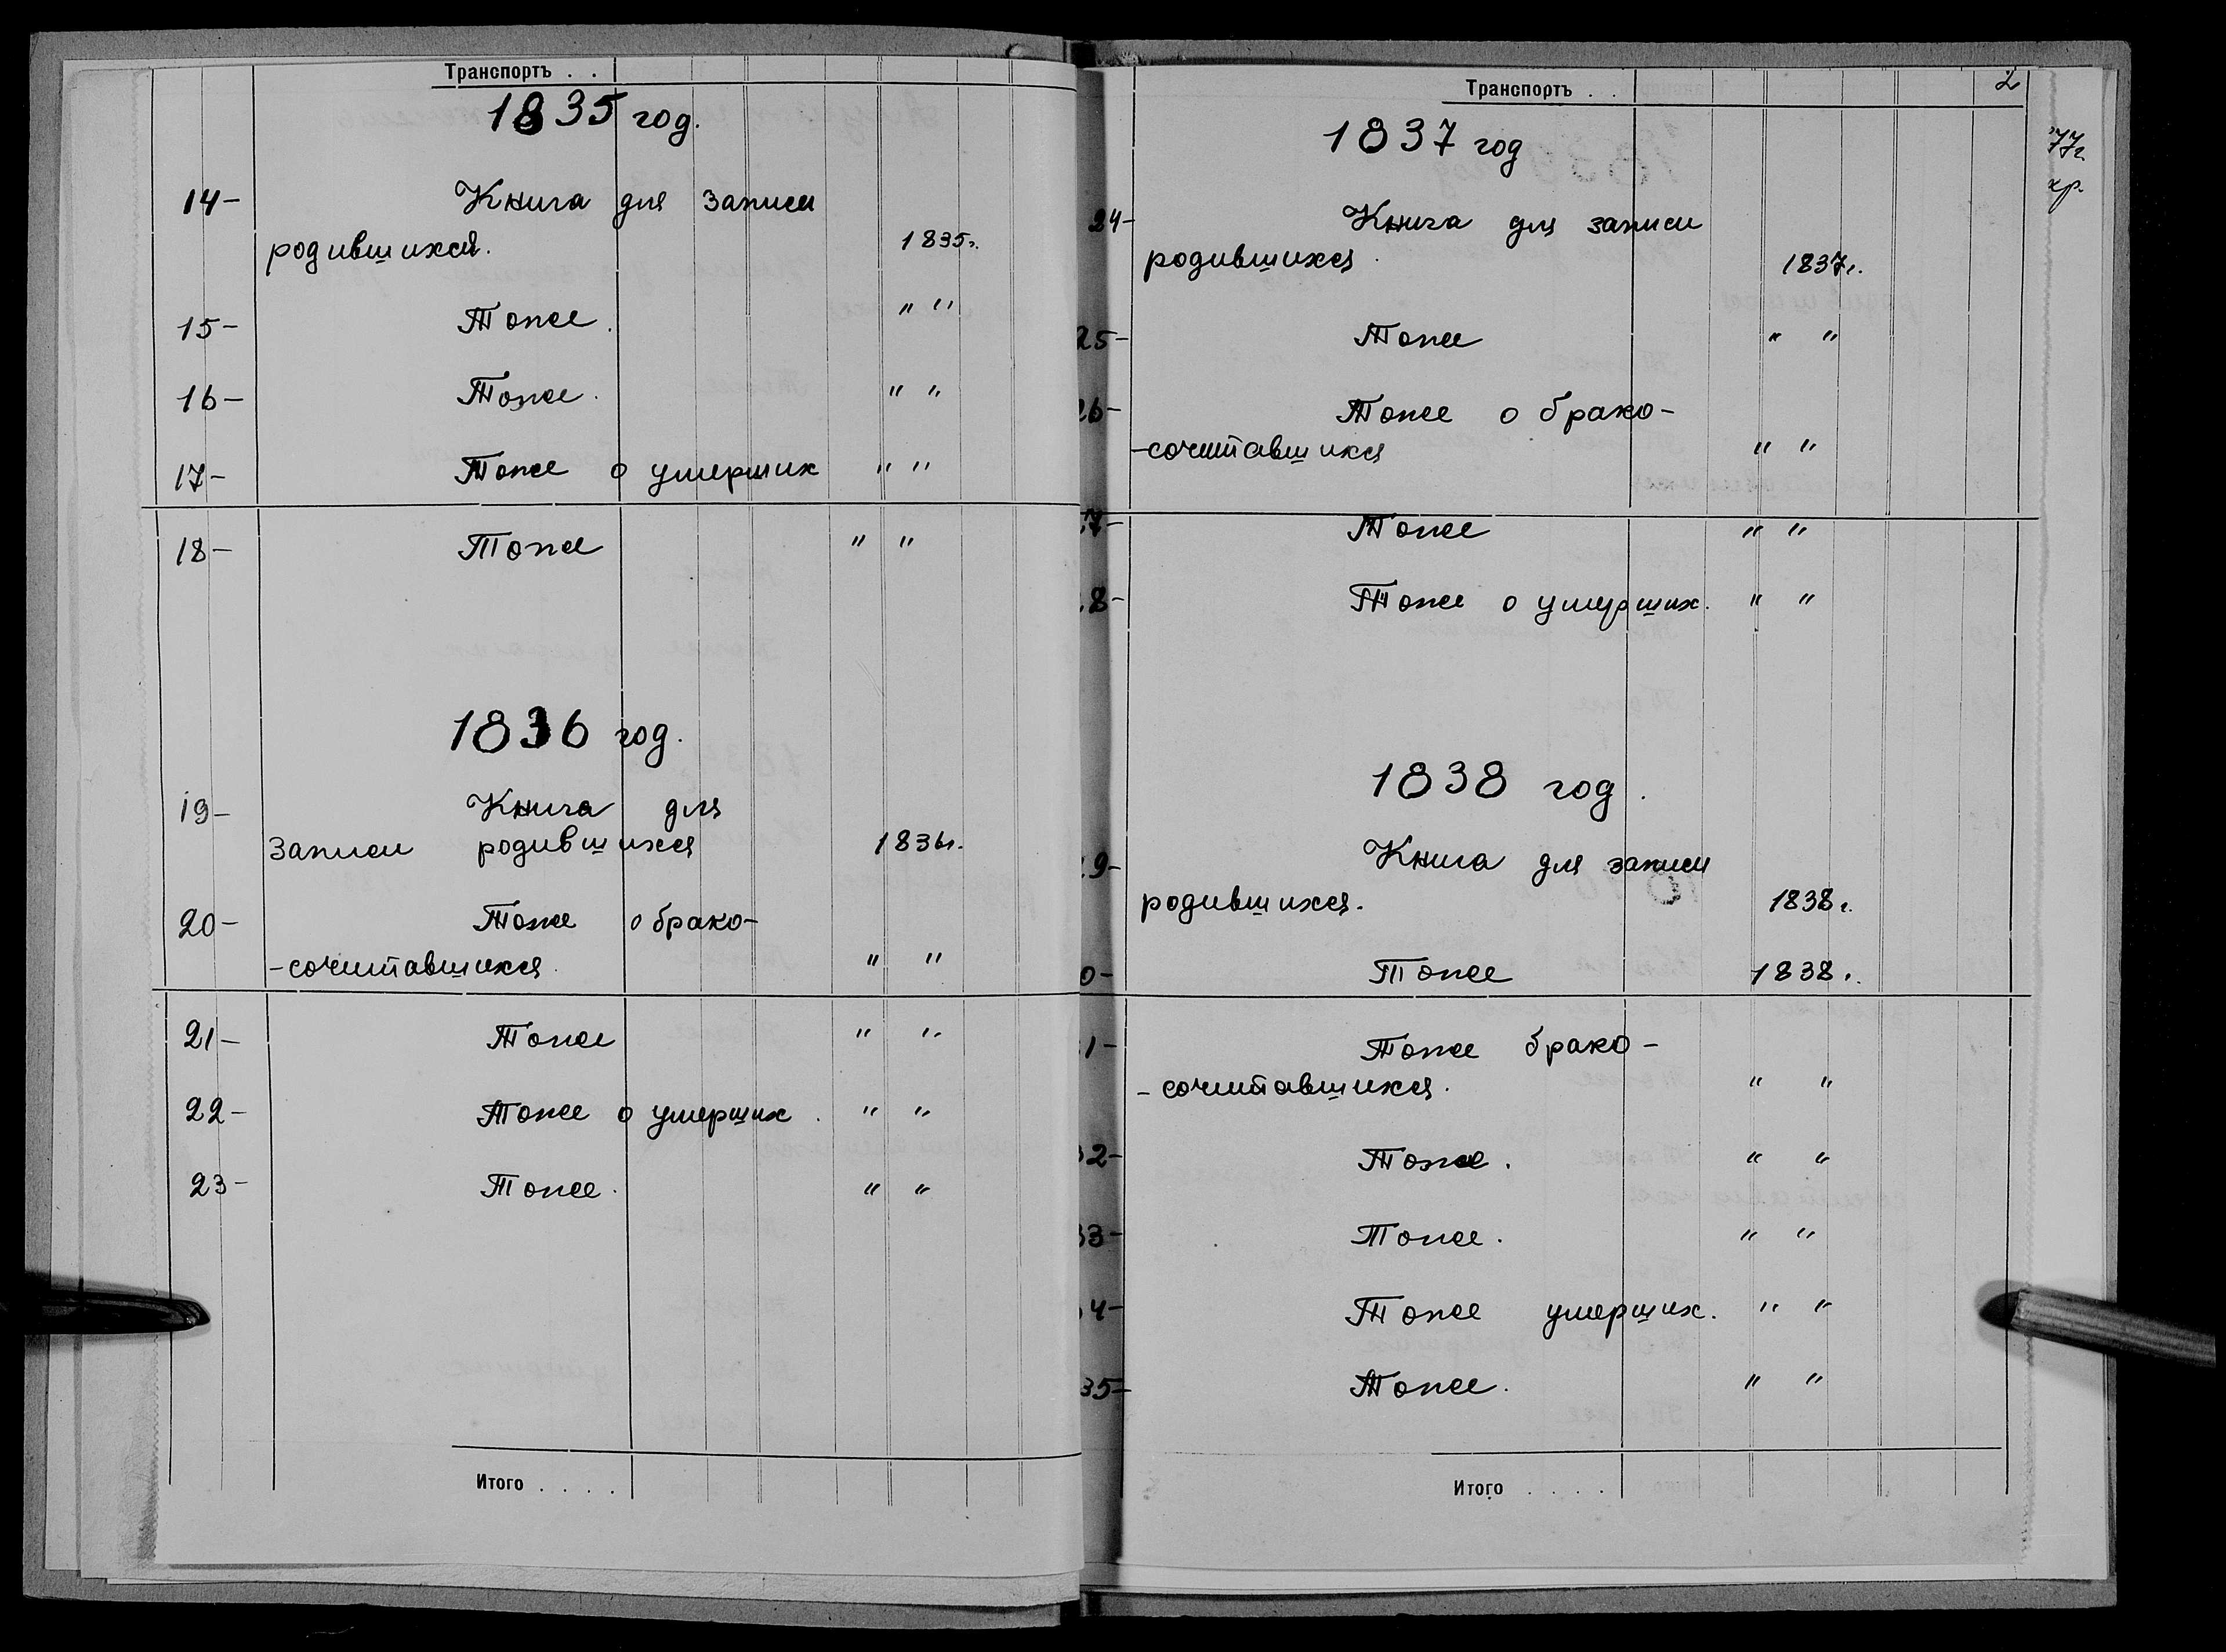 Транспортъ . .
1835 год.
14- Книга для записи
родившихся. 1835г.
15- Тоже. " "
16- Тоже. " "
17- Тоже о умерших " "
18- Тоже " "
1836 год.
19- Книга для
записи родившихся 1836г.
20- Тоже о брако-
-сочитавшихся. " "
21- Тоже " "
22- Тоже о умерших. " "
23- Тоже. " "
Итого . . . .
Транспортъ . . 2
1837 год
24- Книга для записи
родившихся. 1837г.
25- Тоже " "
26- Тоже о брако-
-сочитавшихся " "
7- Тоже " "
8- Тоже о умерших. " "
1838 год.
9- Книга для записи
родившихся. 1838г.
0- Тоже 1838г.
1- Тоже брако-
-сочитавшихся. " "
32- Тоже. " "
33- Тоже. " "
4- Тоже умерших. " "
35- Тоже. " "
Итого . . . .
77г.